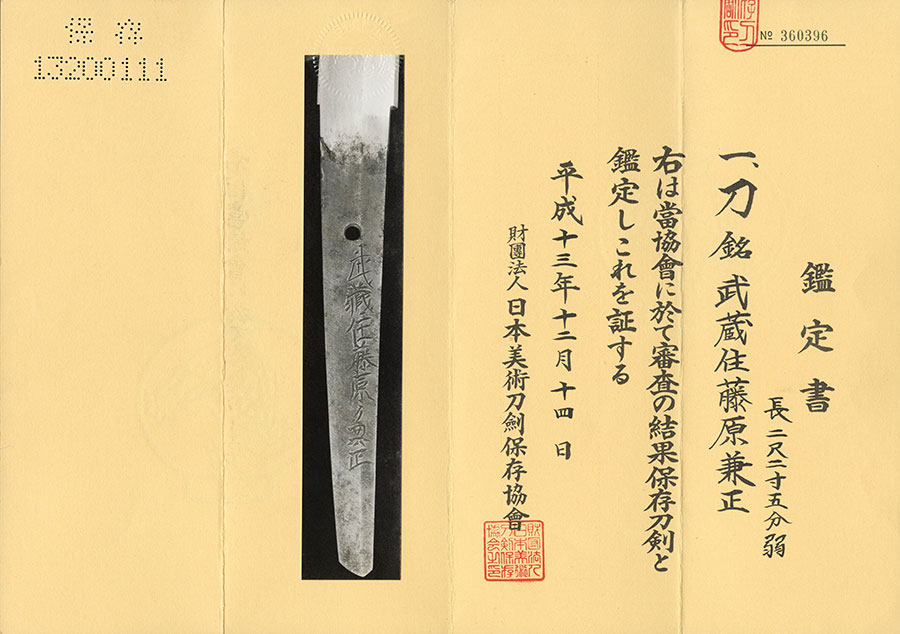 保存
13200111
№ 360396
鑑定書
一、刀 銘 武蔵住藤原兼正
長二尺二寸五分弱
右は當協會に於て審査の結果保存刀剣と
鑑定しこれを証する
平成十三年十二月十四日
財團法人 日本美術刀劍保存協會
武蔵住藤原兼正